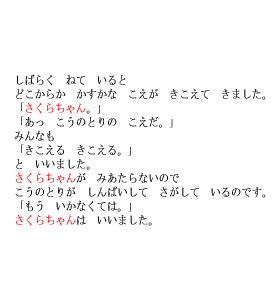 しばらく　ねて　いると
どこからか　かすかな　こえが　きこえて　きました。
「さくらちゃん。」
「あっ　こうのとりの　こえだ。」
みんなも
「きこえる　きこえる。」
と　いいました。
さくらちゃんが　みあたらないので
こうのとりが　しんぱいして　さがして　いるのです。
「もう　いかなくては。」
さくらちゃんは　いいました。